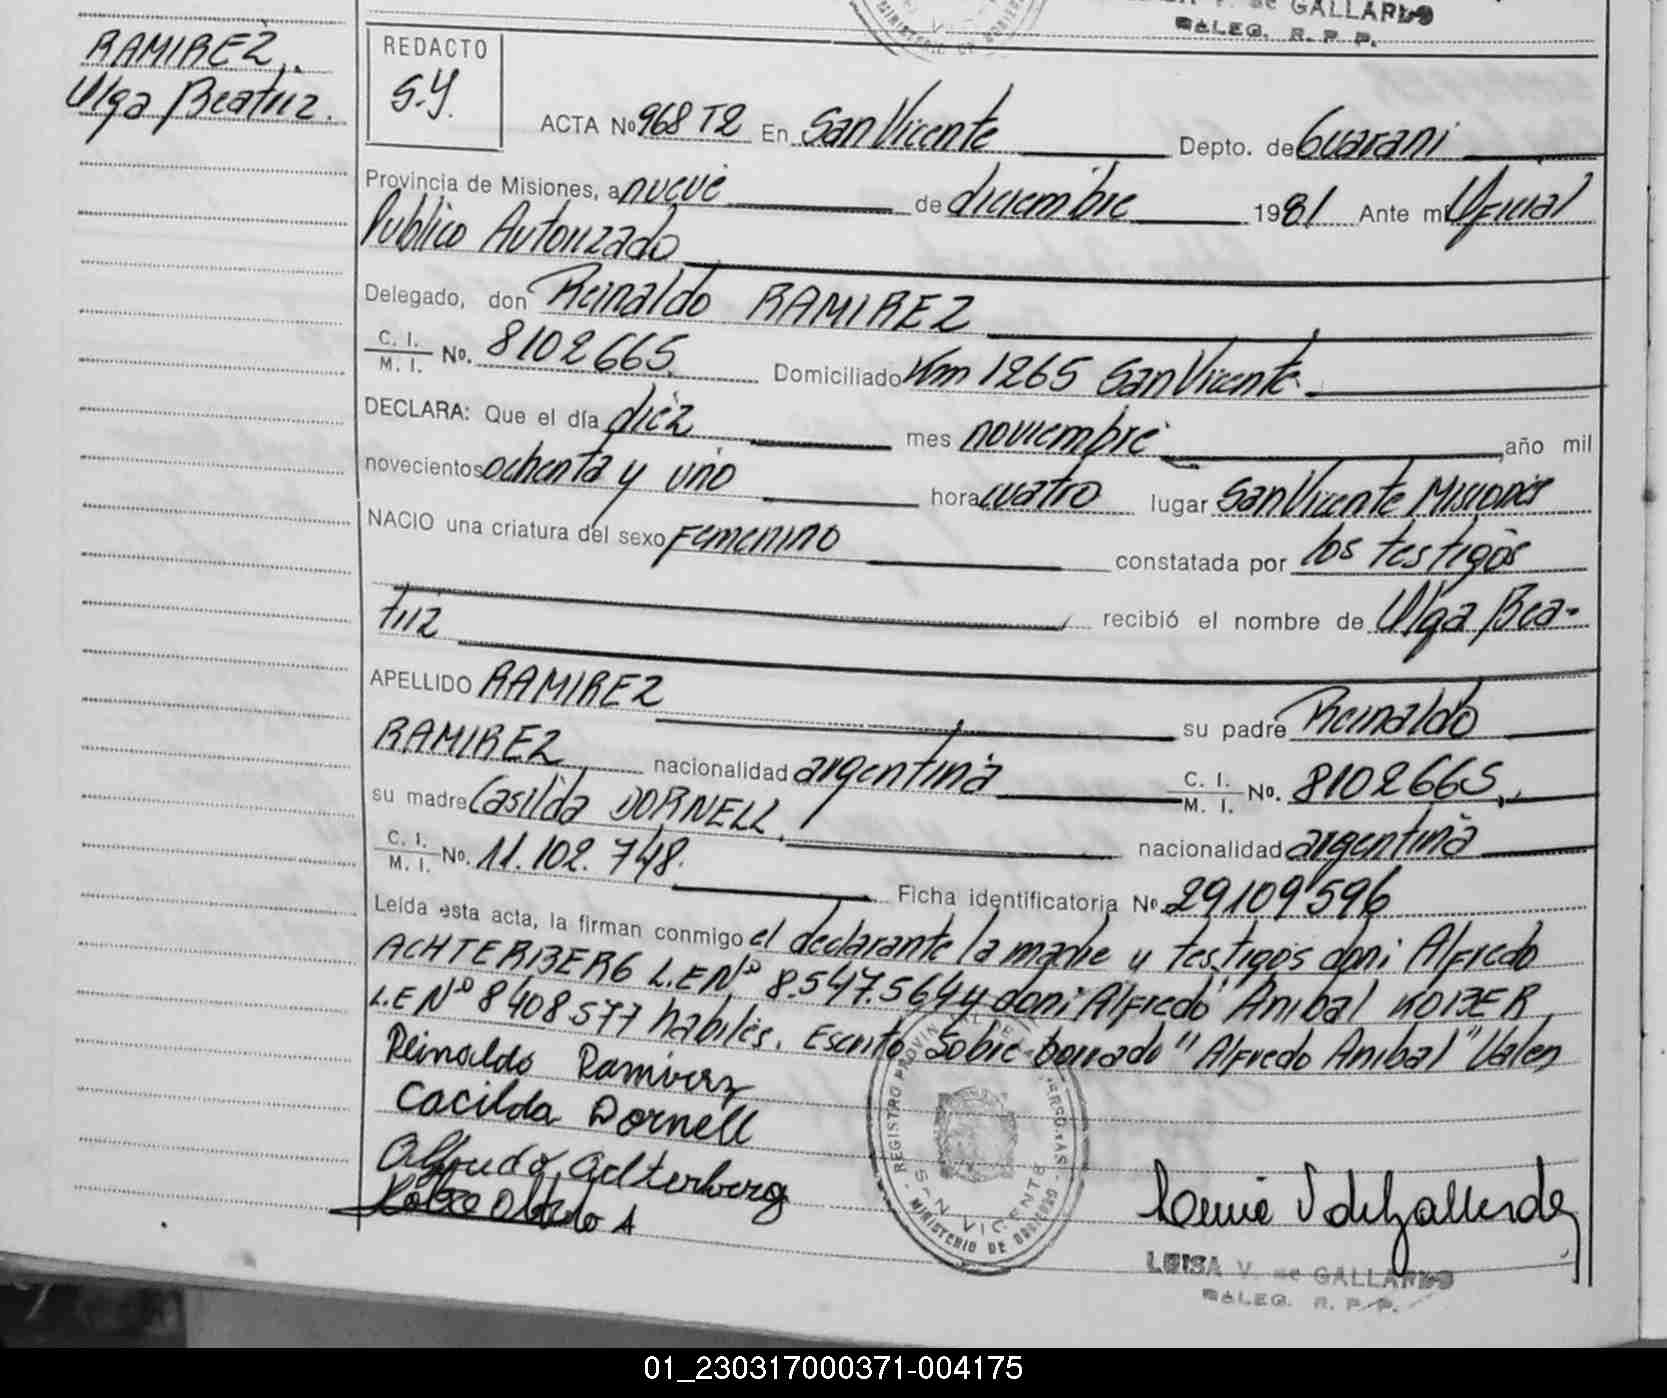 V. de GALLARDO
DALEG. R. P. P.
RAMIREZ.
Olga Beatriz.
REDACTO
S.Y.
ACTA Nº 968 T2 En San Vicente Depto. de Guarani
Provincia de Misiones, a nueve de diciembre 1981 Ante mi Oficial
Publico Autorizado
Delegado, don Reinaldo RAMIREZ
C. I. / M. I. Nº. 8102665. Domiciliado Km 1265 San Vicente.
DECLARA: Que el día diez mes noviembre, año mil
novecientos ochenta y uno hora cuatro lugar San Vicente Misiones
NACIO una criatura del sexo femenino constatada por los testigos
recibió el nombre de Olga Bea-
triz
APELLIDO RAMIREZ su padre Reinaldo
RAMIREZ nacionalidad argentina C. I. / M. I. Nº. 8102665.
su madre Casilda DORNELL. nacionalidad argentina
C. I. / M. I. Nº. 11.102.748. Ficha identificatoria Nº 29109596
Leída esta acta, la firman conmigo el declarante la madre y testigos don: Alfredo
ACHTERBERG L.E Nº 8.547.564 y don: Alfredo Anibal KOBER
L.E Nº 8408577 habiles. Escrito Sobre-borrado "Alfredo Anibal" Valen
Reinaldo Ramirez
Cacilda Dornell
Alfredo Achterberg
A
REGISTRO PROVINCIAL DE LAS PERSONAS
SAN VICENTE
MINISTERIO DE GOBIERNO
LUISA V. de GALLARDO
DALEG. R. P. P.
01_230317000371-004175